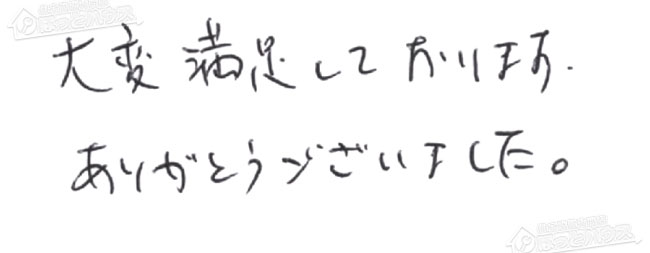 大変満足しております.
ありがとうございました。